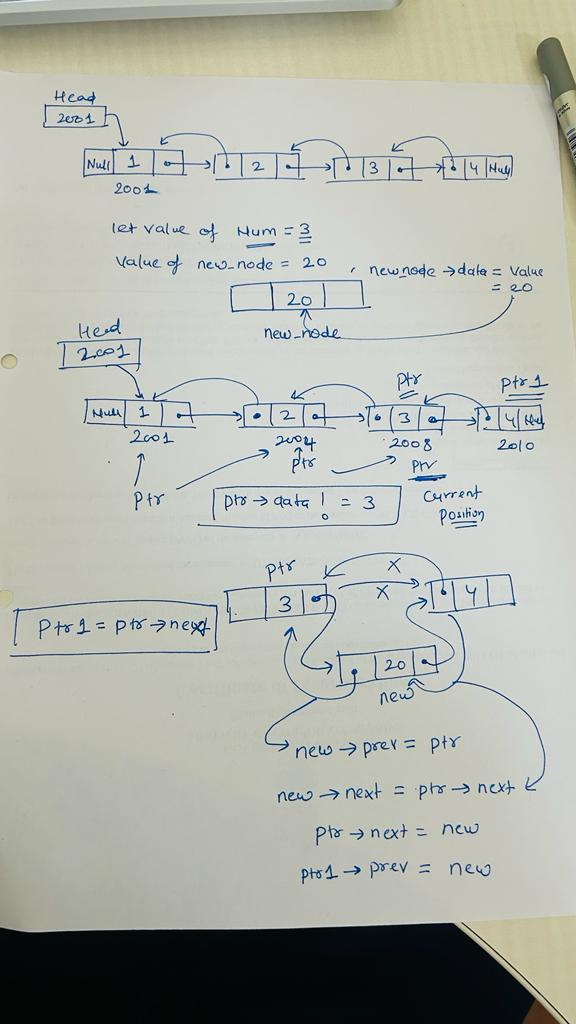 Head
2001
Null 1 2 3 4 Null
2001
let value of Num = 3
Value of new_node = 20 , newnode → data = Value
= 20
20
new_node
Head
2001
ptr ptr1
Null 1 2 3 4 Null
2001 2004 2008 2010
ptr ptr
ptr
ptr → data != 3
Current
Position
ptr
x
3 x 4
Ptr1 = ptr → next
20
new
new → prev = ptr
new → next = ptr → next
ptr → next = new
ptr1 → prev = new